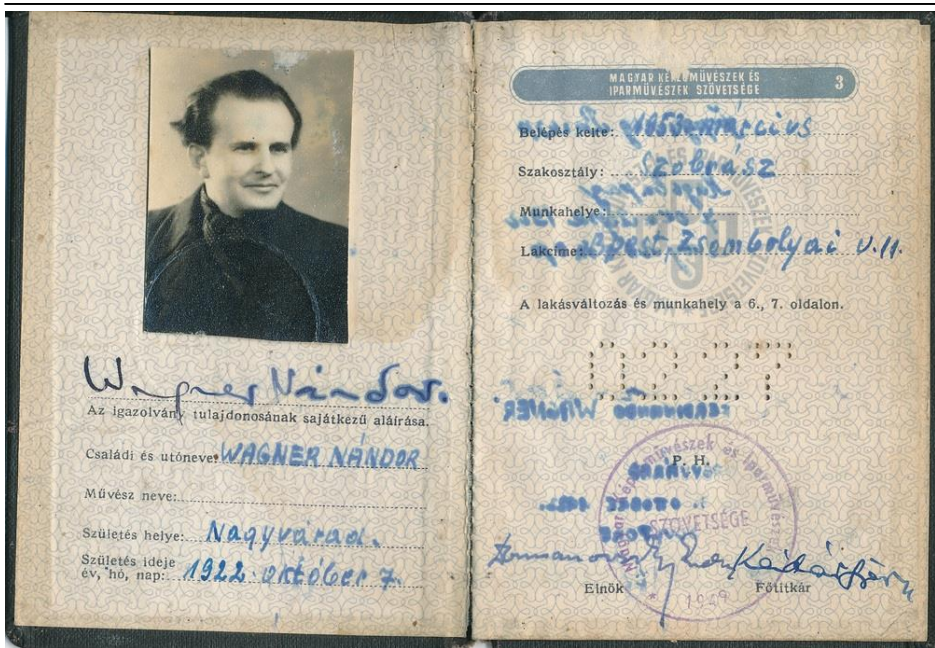 Wagner Nándor.
Az igazolvány tulajdonosának sajátkezű aláírása.
Családi és utóneve: WAGNER NÁNDOR
Művész neve:
Születés helye: Nagyvárad.
Születés ideje
év, hó, nap: 1922 október 7.
MAGYAR KÉPZŐMŰVÉSZEK ÉS
IPARMŰVÉSZEK SZÖVETSÉGE
3
Belépés kelte: március
Szakosztály: Szobrász
Munkahelye:
Lakcíme: Bpest, Zsombolyai u. 11.
A lakásváltozás és munkahely a 6., 7. oldalon.
0227
P. H.
Magyar Képzőművészek és Iparművészek
SZÖVETSÉGE
1949
Elnök
Főtitkár